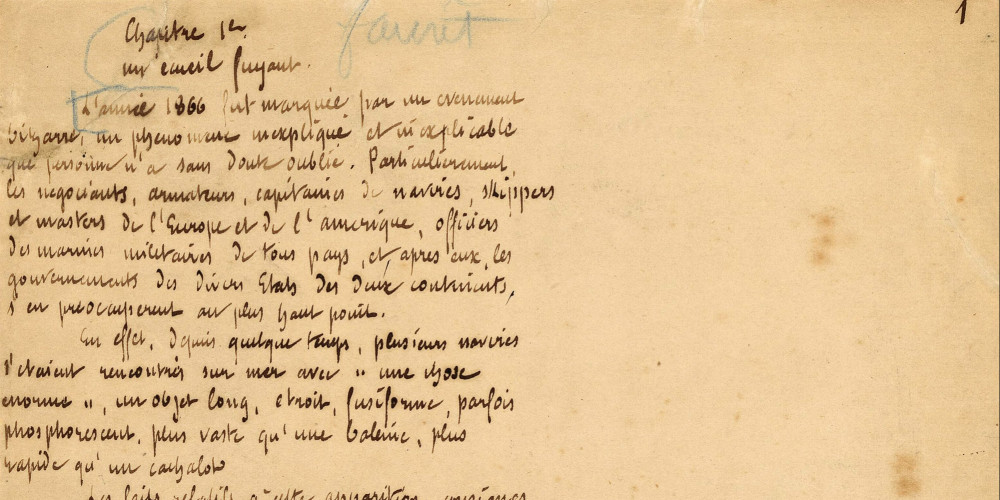 1
Favret
Chapitre 1er.
un écueil fuyant.
L'année 1866 fut marquée par un evenement
bizarre, un phenomene inexpliqué et inexplicable
que personne n'a sans doute oublié. Particulierement,
les negociants, armateurs, capitaines de navires, skippers
et masters de l'Europe et de l'amerique, officiers
des marines militaires de tous pays, et, apres eux, les
gouvernements des divers Etats des deux continents,
s'en préoccuperent au plus haut point.
En effet, depuis quelque temps, plusieurs navires
s'etaient rencontrés sur mer avec " une chose
enorme ", un objet long, etroit, fusiforme, parfois
phosphorescent, plus vaste qu'une baleine, plus
rapide qu'un cachalot
Les faits relatifs a cette apparition, consignes